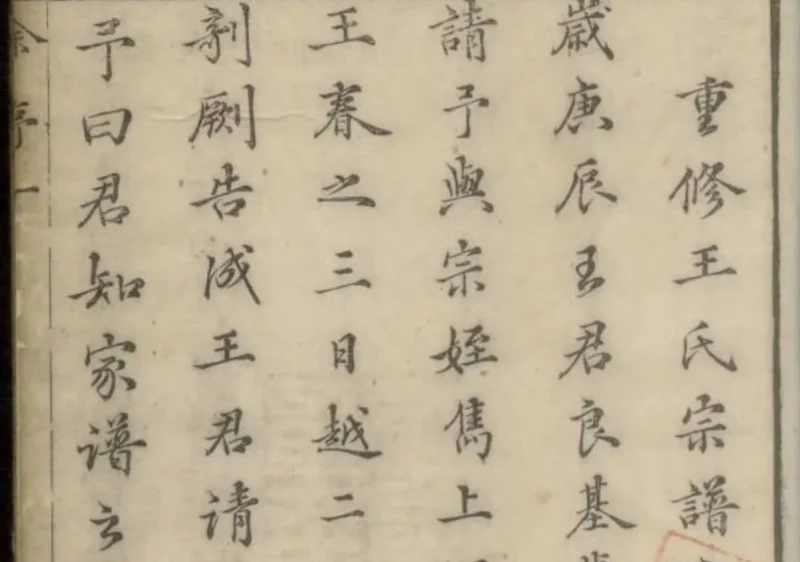 重修王氏宗譜
歲庚辰王君良基
請予與宗姪雋上
王春之三日越二
剞劂告成王君请
予曰君知家譜云
序一